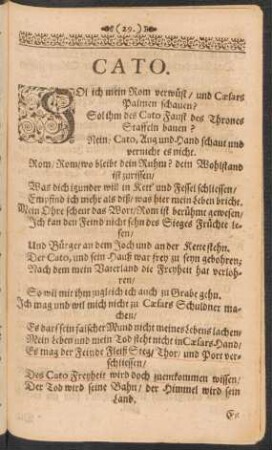 (29.)
CATO.
SOl ich mein Rom verwüst/ und Cæsars
Palmen schauen?
Sol ihm des Cato Faust des Thrones
Staffeln bauen?
Nein/ Cato, Aug und Hand schaut und
vernicht es nicht.
Rom/ Rom/ wo bleibt dein Ruhm? dein Wohlstand
ist zurissen/
Was dich itzunder will in Kett' und Fessel schliessen/
Empfind ich mehr als dis/ was hier mein Leben bricht.
Mein Ohre scheut das Wort/ Rom ist berühmt gewesen/
Ich kan den Feind nicht sehn des Sieges Früchte le-
sen/
Und Bürger an dem Joch und an der Ketten stehn.
Der Cato, und sein Hauß war frey zu seyn gebohren;
Nach dem mein Vaterland die Freyheit hat verloh-
ren/
So wil mit ihm zugleich ich auch zu Grabe gehn.
Ich mag und wil mich nicht zu Cæsars Schuldner ma-
chen/
Es darf sein falscher Mund nicht meines Lebens lachen/
Mein Leben und mein Tod steht nicht in Cæsars Hand/
Es mag der Feinde Fleiß Steg/ Thor/ und Port ver-
schliessen/
Des Cato Freyheit wird doch zu entkommen wissen/
Der Tod wird seine Bahn/ der Himmel wird sein
Land.